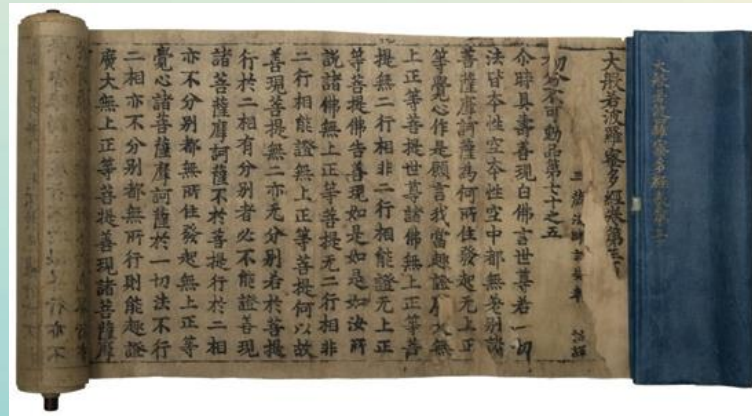 大般若波羅蜜多經卷第三
大般若波羅蜜多經卷第三百
三藏法師玄奘奉 詔譯
初分不可動品第七十之五
尒時具壽善現白佛言世尊若一切
法皆本性空本性空中都無差別諸
菩薩摩訶薩為何所住發起无上正
等覺心作是願言我當趣證廣大無
上正等菩提世尊諸佛無上正等菩
提無二行相非二行相能證无上正
等菩提佛告善現如是如是如汝所
說諸佛無上正等菩提无二行相非
二行相能證無上正等菩提何以故
善現菩提無二亦无分別若於菩提
行於二相有分別者必不能證善現
諸菩薩摩訶薩不於菩提行於二相
亦不分別都無所住發起無上正等
覺心諸菩薩摩訶薩於一切法不行
二相亦不分別都無所行則能趣證
廣大無上正等菩提善現諸菩薩摩